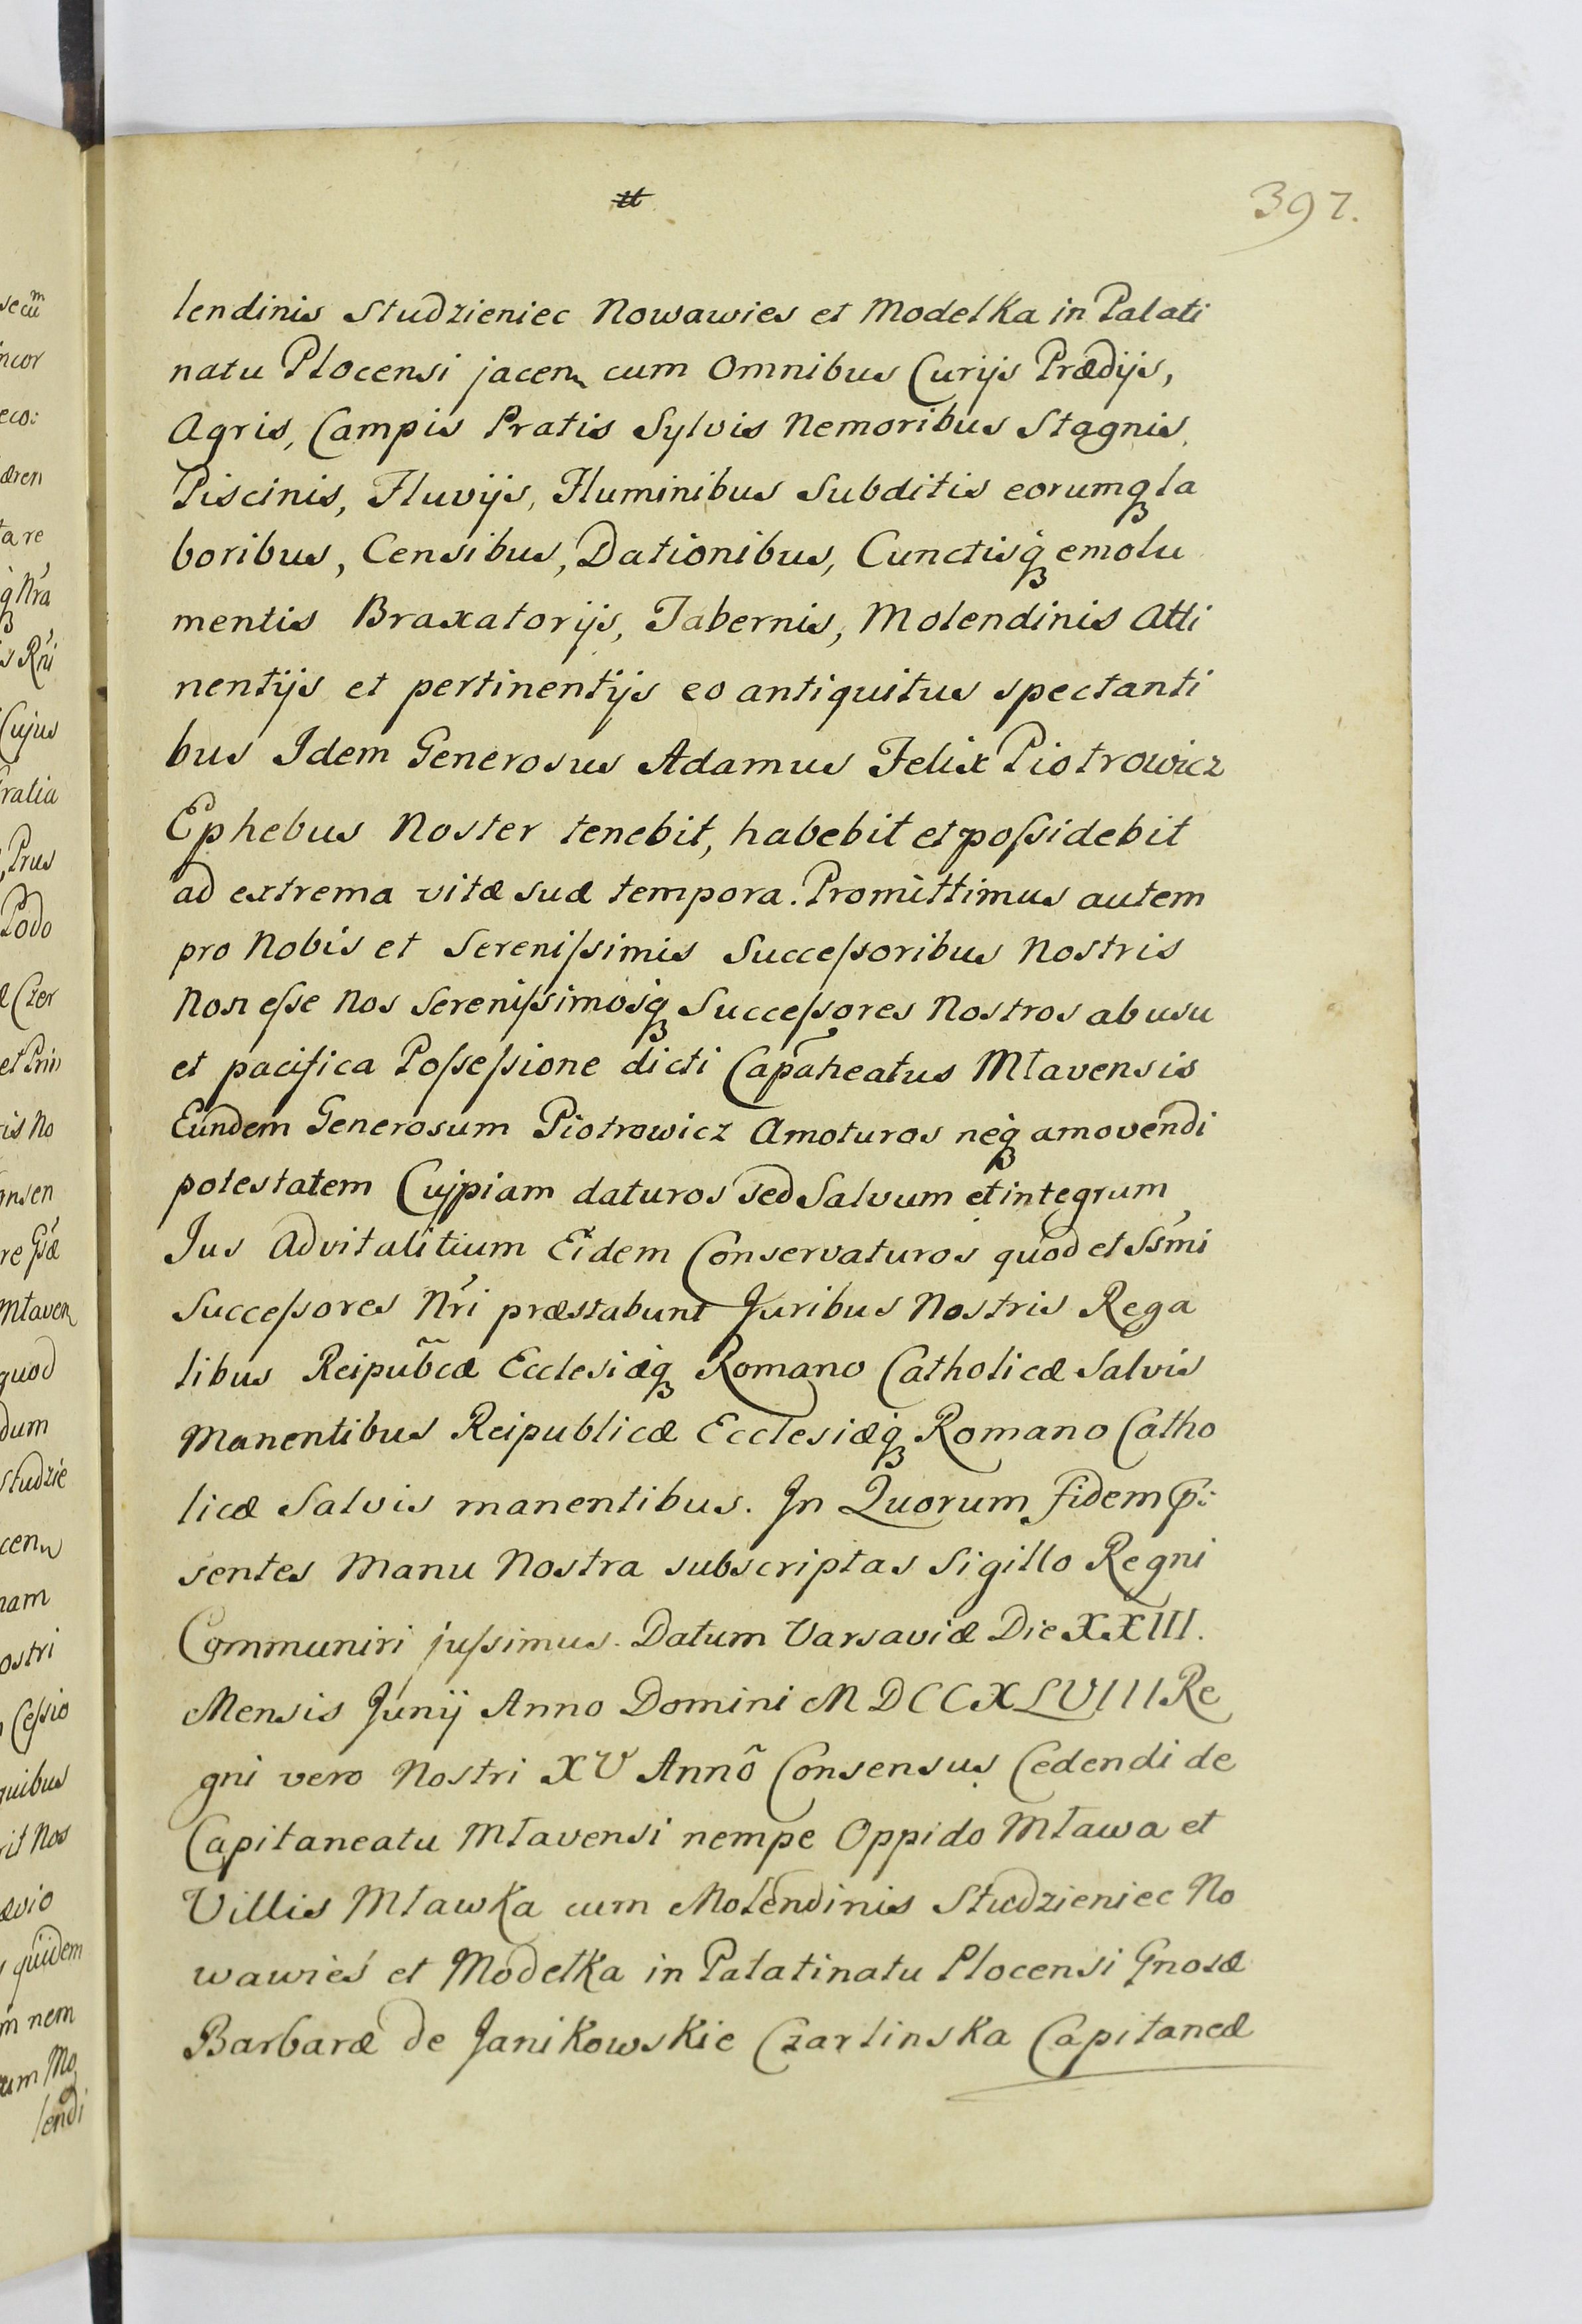 397.
lendinis Studzieniec Nowawies et Modelka in Palati
natu Plocensi jacen cum Omnibus Curijs Prædijs,
Agris, Campis Pratis Sylvis Nemoribus Stagnis
Piscinis, Fluvijs, Fluminibus Subditis eorumq la
boribus, Censibus, Dationibus, Cunctisq emolu
mentis Braxatorijs, Tabernis, Molendinis Atti
nentijs et pertinentijs eo antiquitus spectanti
bus Idem Generosus Adamus Felix Piotrowicz
Ephebus Noster tenebit, habebit et poſsidebit
ad extrema vitæ suæ tempora. Promittimus autem
pro Nobis et Sereniſsimis Succeſsoribus Nostris
Non eſse Nos Sereniſsimosq Succeſsores Nostros ab usu
et pacifica Poſseſsione dicti Capaneatus Mlavensis
Eundem Generosum Piotrowicz Amoturos neq amovendi
potestatem Cujpiam daturos sed Salvum et integrum
Jus Advitalitium Eidem Conservaturos quod et Ssmi
Succeſsores Nri præstabunt Juribus Nostris Rega
libus Reipubcæ Ecclesiæq Romano Catholicæ Salvis
Manentibus Reipublicæ Ecclesiæq Romano Catho
licæ Salvis manentibus. In Quorum fidem p:
sentes Manu Nostra subscriptas Sigillo Regni
Communiri juſsimus. Datum Varsaviæ Die XXIII.
Mensis Junij Anno Domini MDCCXLVIII Re
gni vero Nostri XV Anno Consensus Cedendi de
Capitaneatu Mlavensi nempe Oppido Mlawa et
Villis Mlawka cum Molendinis Studzieniec No
wawieś et Modelka in Palatinatu Plocensi Gnosæ
Barbaræ de Janikowskie Czarlinska Capitaneæ